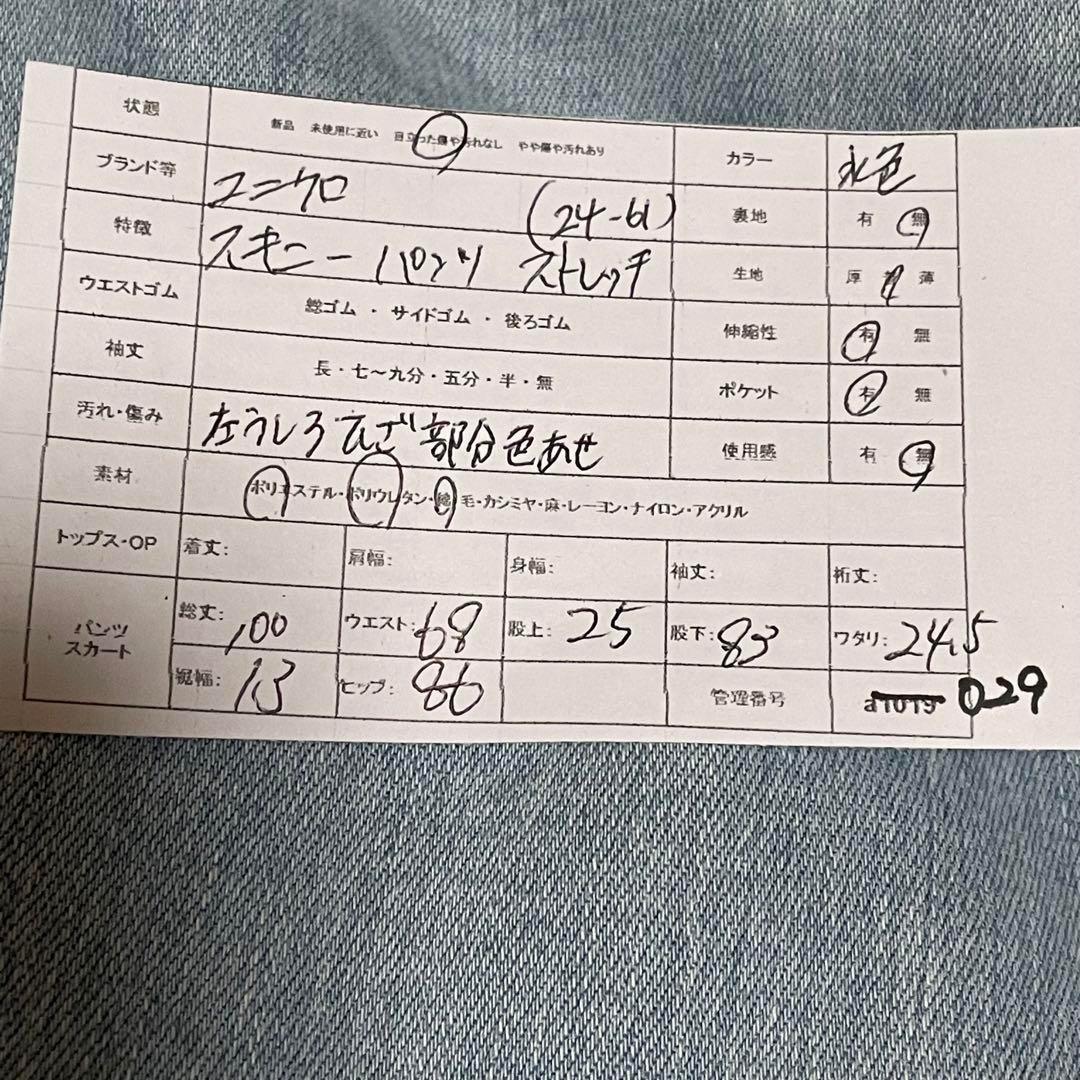 状態 新品 未使用に近い 目立った傷や汚れなし やや傷や汚れあり カラー 水色
ブランド等 ユニクロ (24-61) 裏地 有 無
特徴 スキニーパンツ ストレッチ 生地 厚 薄
ウエストゴム 総ゴム ・ サイドゴム ・ 後ろゴム 伸縮性 有 無
袖丈 長・七〜九分・五分・半・無 ポケット 有 無
汚れ・傷み 左うしろひざ部分色あせ 使用感 有 無
素材 ポリエステル・ポリウレタン・綿・毛・カシミヤ・麻・レーヨン・ナイロン・アクリル
トップス・OP 着丈: 肩幅: 身幅: 袖丈: 裄丈:
パンツ スカート 総丈: 100 ウエスト: 68 股上: 25 股下: 83 ワタリ: 24.5
裾幅: 13 ヒップ: 86 管理番号 029